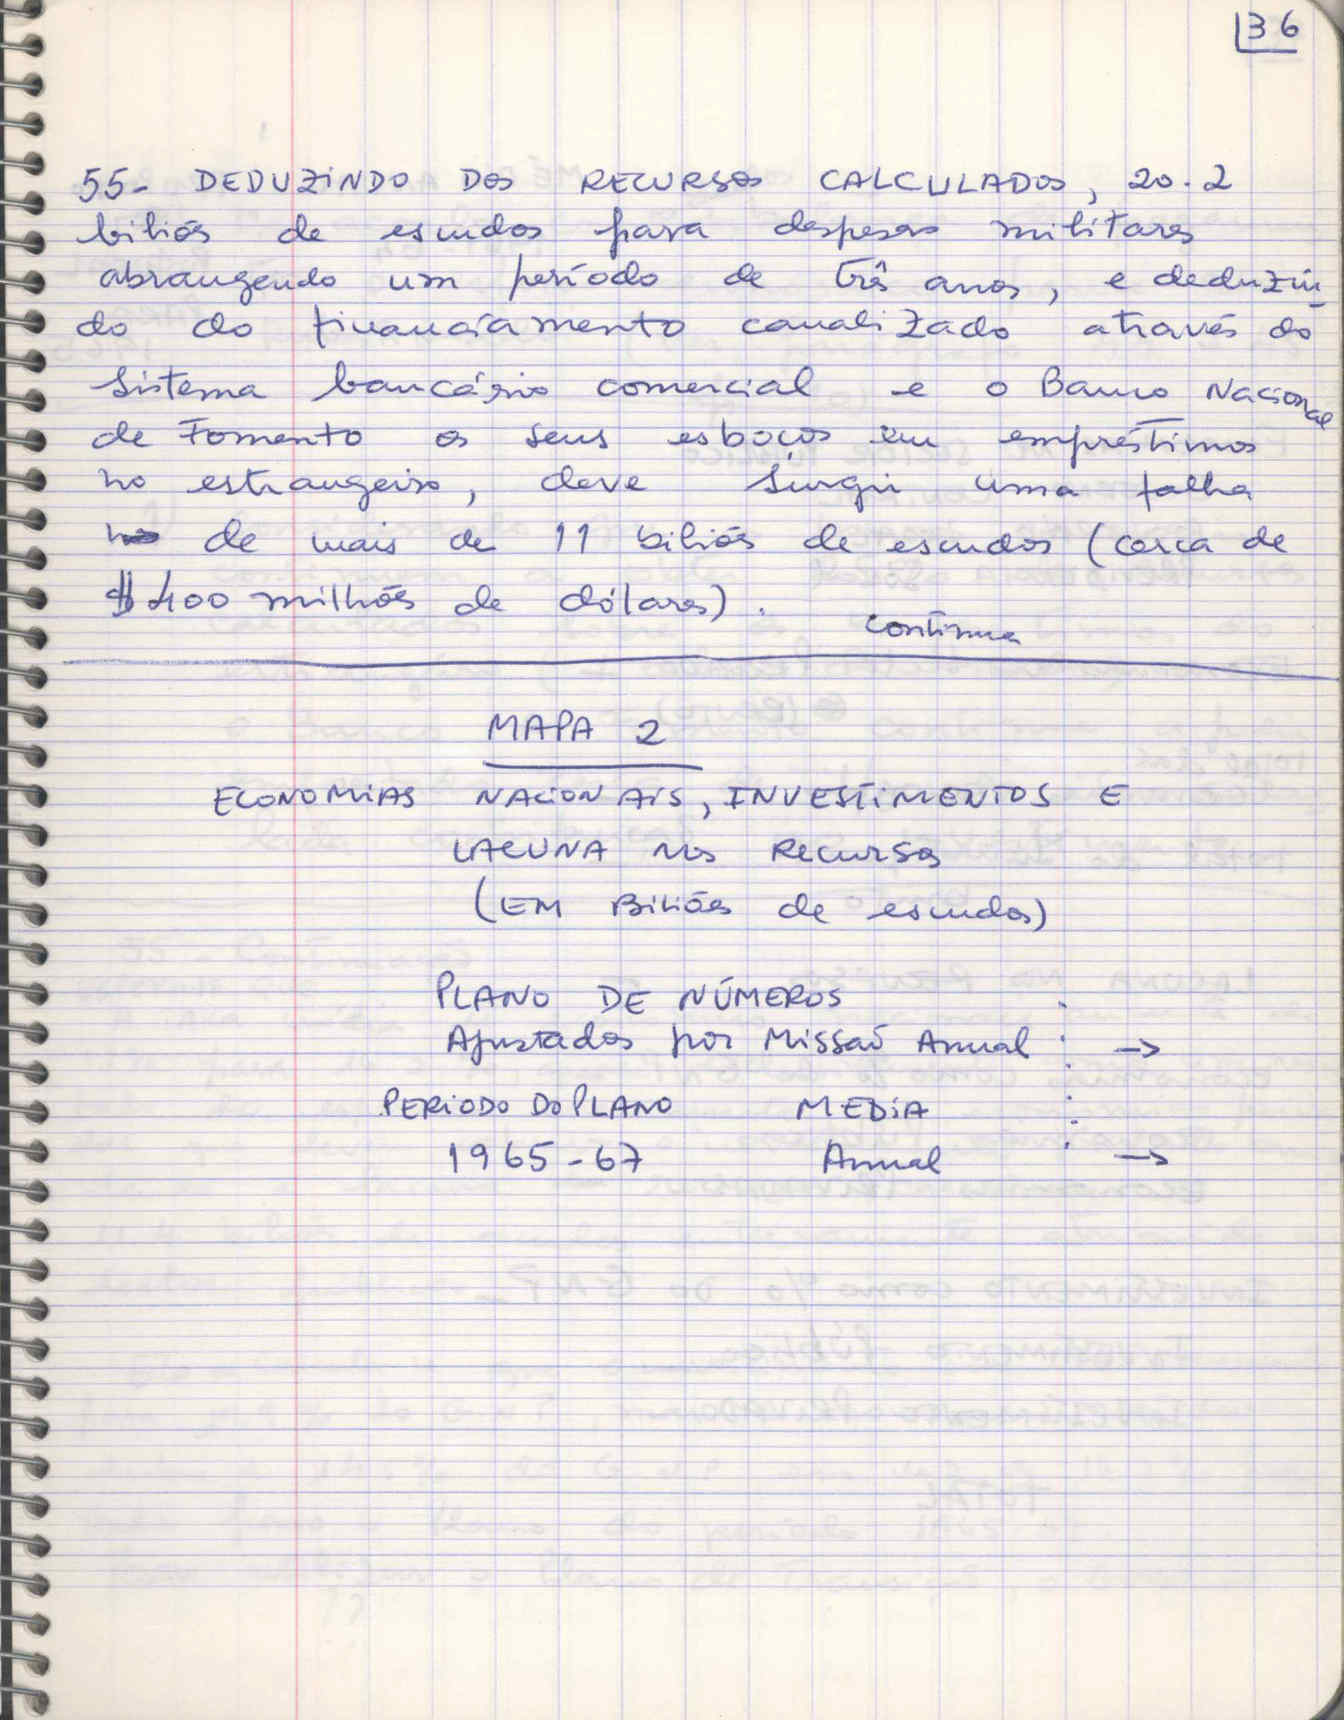 36
55- DEDUZINDO DOS RECURSOS CALCULADOS, 20.2
biliões de escudos para despesas militares
abrangendo um período de três anos, e deduzin-
do do financiamento canalizado através do
Sistema bancário comercial e o Banco Nacional
de Fomento os seus esboços em empréstimos
no estrangeiro, deve surgir uma falha
de mais de 11 biliões de escudos (cerca de
$400 milhões de dólares).
continua
MAPA 2
ECONOMIAS NACIONAIS, INVESTIMENTOS E
LACUNA nos Recursos
(EM Biliões de escudos)
PLANO DE NÚMEROS
Ajustados por Missão Anual →
PERIODO DO PLANO MEDIA
1965-67 Anual →